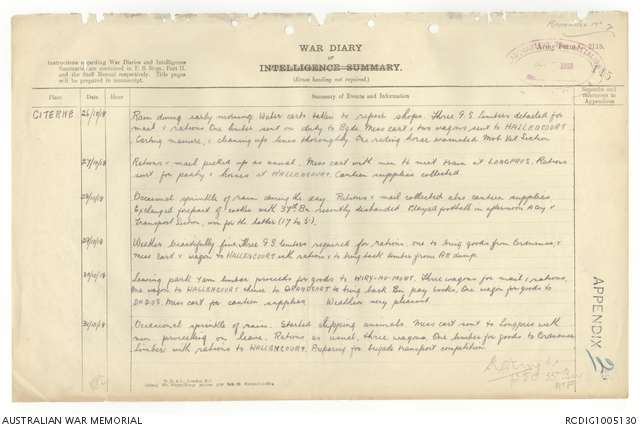 Appendix No 7
WAR DIARY
of
INTELLIGENCE SUMMARY.
(Erase heading not required.)
Army Form C. 2118.
Instructions regarding War Diaries and Intelligence
Summaries are contained in F. S. Regs., Part II.
and the Staff Manual respectively. Title pages
will be prepared in manuscript.
Place
Date
Hour
Summary of Events and Information
Remarks and
references to
Appendices
CITERNE 26/10/18 Rain during early morning. Water carts taken to repair shops. Three G.S. Limbers detailed for
mail & rations. One limber sent on duty to Bgde. Mess cart & two wagons sent to HALLENCOURT
Carting manure, & cleaning up lines thoroughly. One riding horse evacuated Mob. Vet Section
27/10/18 Rations & mail picked up as usual. Mess cart with men to meet train at LONGPRES. Rations
sent for party & horses at HALLENCOURT. Canteen supplies collected
28/10/18 Occasional sprinkle of rain during the day. Rations & mail collected also canteen supplies.
Exchanged forepart of cooker with 37th Bn recently disbanded. Played football in afternoon A Coy v
Transport Section, win for the latter (17 to 5).
29/10/18 Weather beautifully fine. Three G.S. limbers required for rations, one to bring goods from Ordnance,
Mess cart & wagon to HALLENCOURT with rations & to bring back limber from AB dump.
29/10/18 Leaving park 9am limber proceeds for goods to WIRY-AU-MONT. Three wagons for mail & rations.
One wagon to HALLENCOURT thence to to bring back Bn pay books, One wagon for goods to
DADOS. Mess cart for canteen supplies. Weather very pleasant.
30/10/18 Occasional sprinkle of rain. Started clipping animals. Mess cart sent to Longpres with
men proceeding on leave. Rations as usual, three wagons. One limber for goods to Ordnance
Limber with rations to HALLENCOURT. Preparing for brigade transport competition.
APPENDIX 2
AUSTRALIAN WAR MEMORIAL
RCDIG1005130